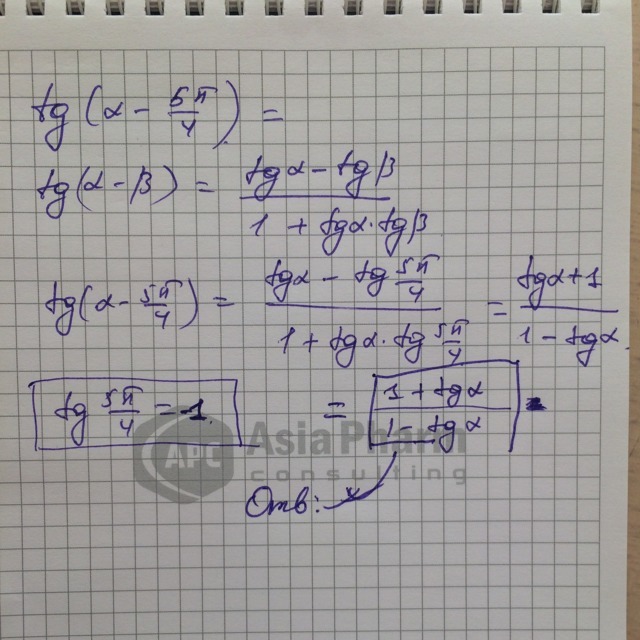 tg(α - 5π/4) =
tg(α - β) = (tgα - tgβ)/(1 + tgα·tgβ)
tg(α - 5π/4) = (tgα - tg 5π/4)/(1 + tgα·tg 5π/4) = (tgα + 1)/(1 - tgα)
tg 5π/4 = -1. = (1 + tgα)/(1 - tgα)
APC Asia Pharm
consulting
Отв: